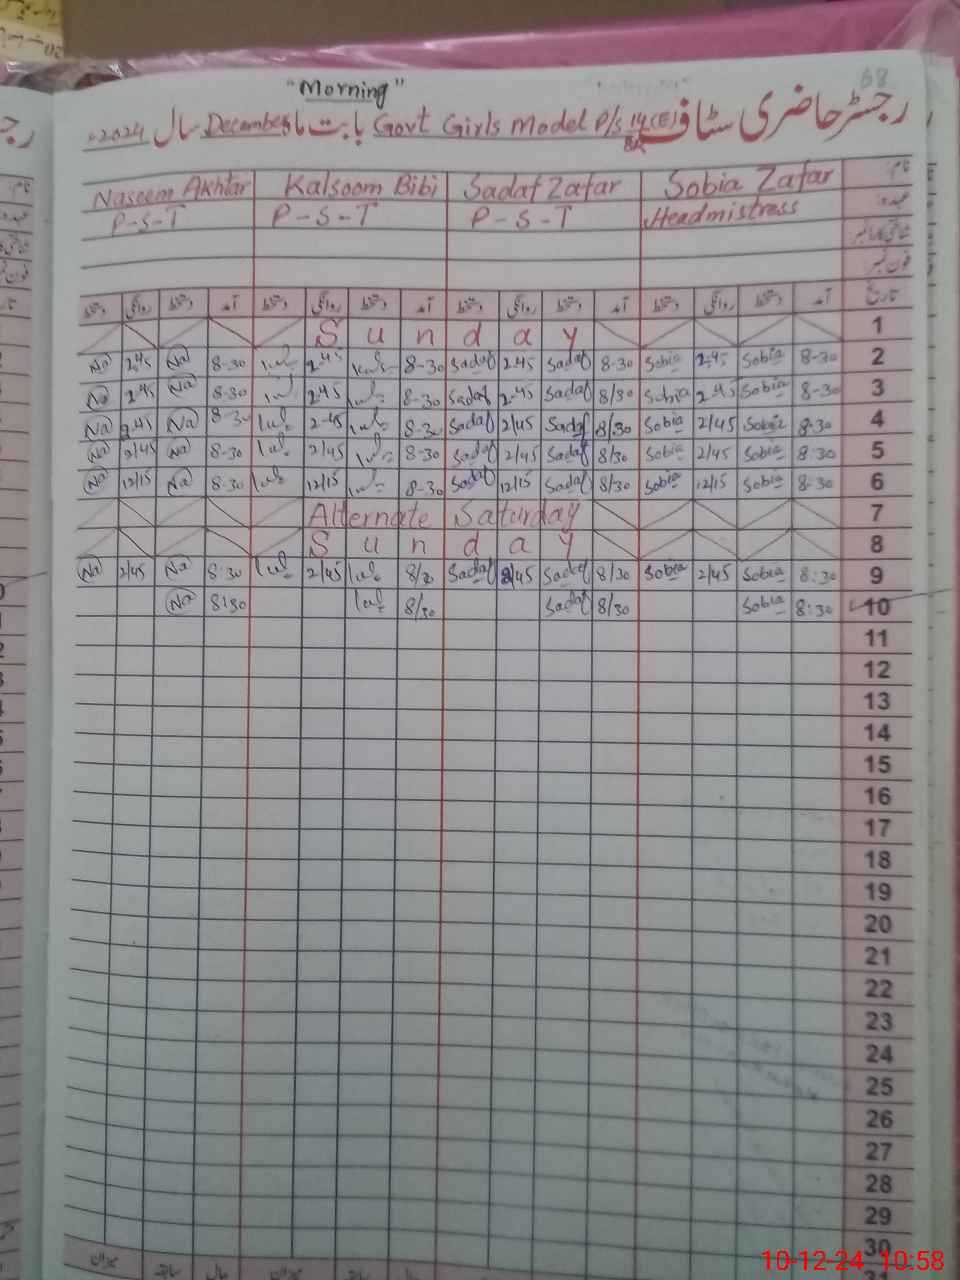 68
"Morning"
رجسٹر حاضری سٹاف Govt Girls Model P/S 14(E)BR بابت ماہ December سال 2024ء
Naseem Akhtar Kalsoom Bibi Sadaf Zafar Sobia Zafar نام:
P-S-T P-S-T P-S-T Headmistress عہدہ:
شناختی کارڈ نمبر:
فون نمبر:
دستخط روانگی دستخط آمد دستخط روانگی دستخط آمد دستخط روانگی دستخط آمد دستخط روانگی دستخط آمد تاریخ
Sunday 1
Na 2.45 Na 8-30 2-45 8-30 Sadaf 2-45 Sadaf 8-30 Sobia 2-45 Sobia 8-30 2
Na 2-45 Na 8-30 2-45 8-30 Sadaf 2-45 Sadaf 8/30 Sobia 2-45 Sobia 8-30 3
Na 2-45 Na 8-30 2-45 8-30 Sadaf 2/45 Sadaf 8/30 Sobia 2/45 Sobia 8-30 4
Na 2/45 Na 8-30 2/45 8-30 Sadaf 2/45 Sadaf 8/30 Sobia 2/45 Sobia 8:30 5
Na 12/15 Na 8-30 12/15 8-30 Sadaf 12/15 Sadaf 8/30 Sobia 12/15 Sobia 8-30 6
Alternate Saturday 7
Sunday 8
Na 2/45 Na 8:30 2/45 8/30 Sadaf 2/45 Sadaf 8/30 Sobia 2/45 Sobia 8:30 9
Na 8:30 8/30 Sadaf 8/30 Sobia 8:30 10
11
12
13
14
15
16
17
18
19
20
21
22
23
24
25
26
27
28
29
30
10-12-24 10:58